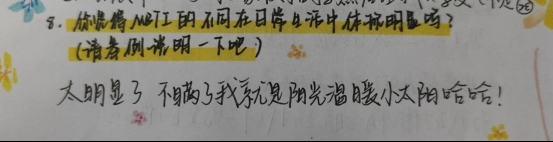 8. 你觉得MBTI的不同在日常生活中体现明显吗？
(请举例说明一下吧)
太明显了 不瞒了我就是阳光温暖小太阳哈哈！